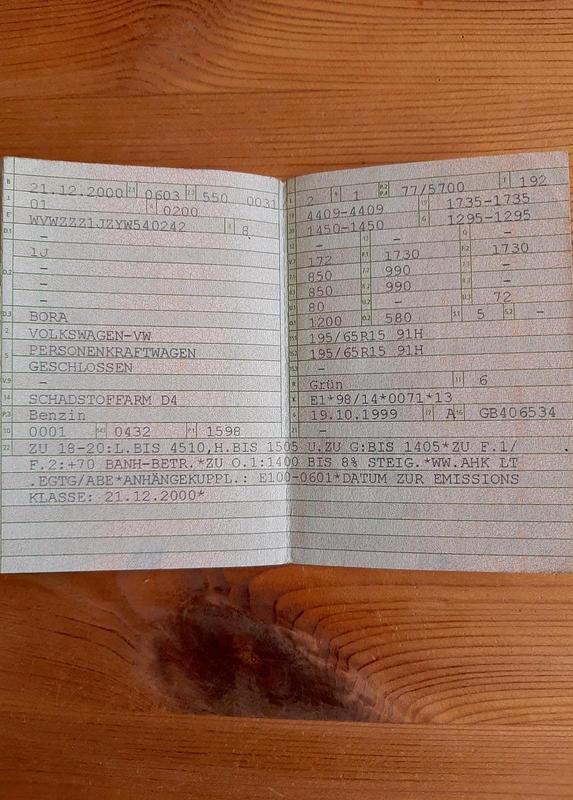 B 21.12.2000 2.1 0603 2.2 550 0031
J 01 4 0200
E WVWZZZ1JZYW540242 3 8
D.1 –
–
1J
D.2 –
–
–
D.3 BORA
2 VOLKSWAGEN-VW
5 PERSONENKRAFTWAGEN
GESCHLOSSEN
V.9 –
14 SCHADSTOFFARM D4
P.3 Benzin
10 0001 14.1 0432 P.1 1598
L 2 9 1 P.2 P.4 77/5700 T 192
18 4409-4409 19 1735-1735
20 1450-1450 G 1295-1295
12 – 13 – Q –
V.7 172 F.1 1730 F.2 1730
7.1 850 7.2 990 7.3 –
8.1 850 8.2 990 8.3 –
U.1 80 U.2 – U.3 72
O.1 1200 O.2 580 S.1 5 S.2 –
15.1 195/65R15 91H
15.2 195/65R15 91H
15.3 –
R Grün 11 6
K E1*98/14*0071*13
6 19.10.1999 17 A 16 GB406534
21 –
22 ZU 18-20:L.BIS 4510,H.BIS 1505 U.ZU G:BIS 1405*ZU F.1/
F.2:+70 BANH-BETR.*ZU O.1:1400 BIS 8% STEIG.*WW.AHK LT
.EGTG/ABE*ANHÄNGEKUPPL.: E100-0601*DATUM ZUR EMISSIONS
KLASSE: 21.12.2000*